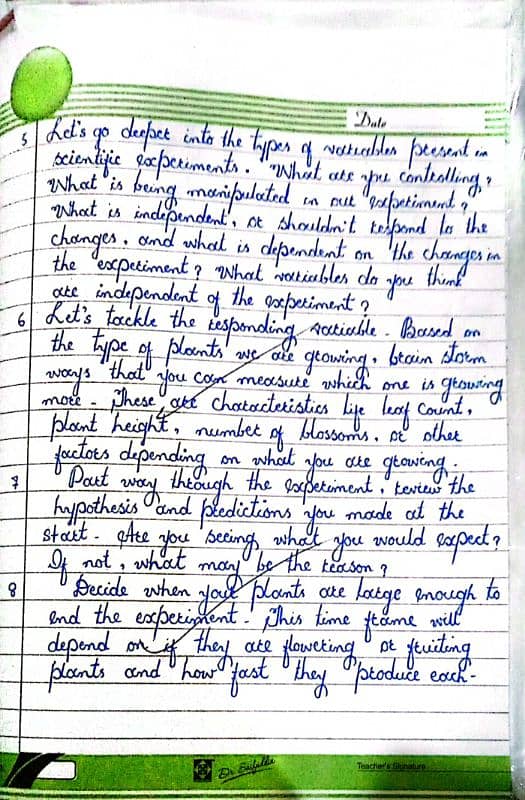 Date
5 Let's go deeper into the types of variables present in
scientific experiments. What are you controlling?
What is being manipulated in our experiment?
What is independent, or shouldn't respond to the
changes, and what is dependent on the changes in
the experiment? What variables do you think
are independent of the experiment?
6 Let's tackle the responding variable. Based on
the type of plants we are growing, brain storm
ways that you can measure which one is growing
more. These are characteristics life leaf count,
plant height, number of blossoms, or other
factors depending on what you are growing.
7 Part way through the experiment, review the
hypothesis and predictions you made at the
start. Are you seeing what you would expect?
If not, what may be the reason?
8 Decide when your plants are large enough to
end the experiment. This time frame will
depend on if they are flowering or fruiting
plants and how fast they produce each-
Teacher's Signature